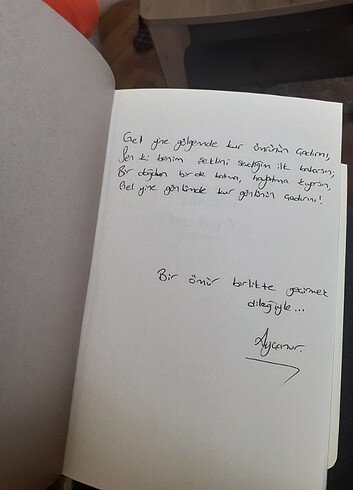 Gel yine gölgemde kur ömrünün çadırını,
Sen ki benim seklini sevdiğim ilk baharsın,
Bir doğdun bir de batma, hayatıma kıyarsın,
Gel yine gönlümde kur gönlünün çadırını!
Bir ömür birlikte geçirmek
dileğiyle...
Aycanur.